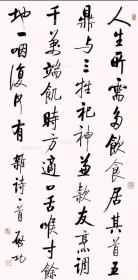 人生所需多飲食居其首五
鼎与三牲祀神兼款友烹調
千萬端飢時方適口舌喉寸餘
地一咽復何有 雜詩一首 啟功